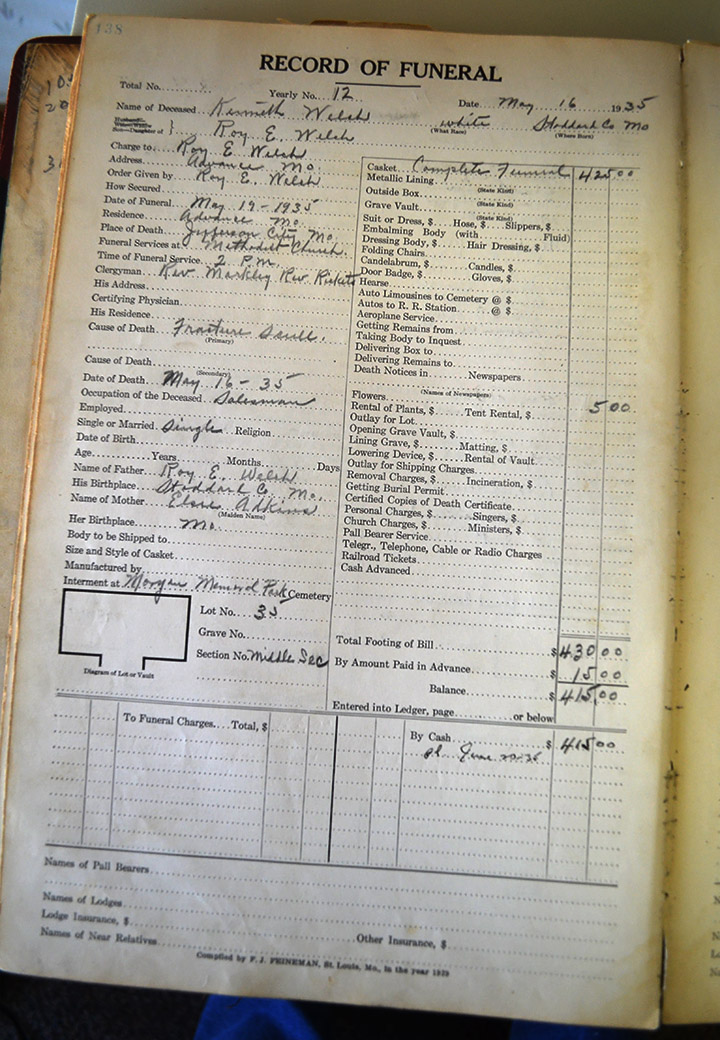 138
RECORD OF FUNERAL
Total No. Yearly No. 12 Date May 16 1935
Name of Deceased Kenneth Welsh white Stoddard Co Mo
(What Race) (Where Born)
Son or Daughter of } Roy E. Welsh
Charge to Roy E Welsh
Address Advance Mo.
Order Given by Roy E. Welsh
How Secured
Date of Funeral May 19-1935
Residence Advance Mo.
Place of Death Jefferson City, Mo.
Funeral Services at Methodist Church.
Time of Funeral Service 2 P.M.
Clergyman Rev. Markley Rev Rickets
His Address
Certifying Physician
His Residence
Cause of Death Fracture Scull.
(Primary)
Cause of Death
(Secondary)
Date of Death May 16-35
Occupation of the Deceased Salesman
Employed
Single or Married Single Religion
Date of Birth
Age Years Months Days
Name of Father Roy E. Welsh
His Birthplace Stoddard Co, Mo.
Name of Mother Elsie Adkins
(Maiden Name)
Her Birthplace Mo.
Body to be Shipped to
Size and Style of Casket
Manufactured by
Interment at Morgan Memorial Park Cemetery
Lot No. 35
Grave No.
Section No. Middle Sec
Diagram of Lot or Vault
Casket Complete Funeral 425 00
Metallic Lining
Outside Box
(State Kind)
Grave Vault
(State Kind)
Suit or Dress, $ Hose, $ Slippers, $
Embalming Body (with Fluid)
Dressing Body, $ Hair Dressing, $
Folding Chairs
Candelabrum, $ Candles, $
Door Badge, $ Gloves, $
Hearse
Auto Limousines to Cemetery @ $
Autos to R. R. Station @ $
Aeroplane Service
Getting Remains from
Taking Body to Inquest
Delivering Box to
Delivering Remains to
Death Notices in Newspapers
(Names of Newspapers)
Flowers 5 00
Rental of Plants, $ Tent Rental, $
Outlay for Lot
Opening Grave Vault, $
Lining Grave, $ Matting, $
Lowering Device, $ Rental of Vault
Outlay for Shipping Charges
Removal Charges, $ Incineration, $
Getting Burial Permit
Certified Copies of Death Certificate
Personal Charges, $ Singers, $
Church Charges, $ Ministers, $
Pall Bearer Service
Telegr., Telephone, Cable or Radio Charges
Railroad Tickets
Cash Advanced
Total Footing of Bill $ 430 00
By Amount Paid in Advance $ 15 00
Balance $ 415 00
Entered into Ledger, page or below
To Funeral Charges Total, $ By Cash $ 415 00
Names of Pall Bearers
Names of Lodges
Lodge Insurance, $ Other Insurance, $
Names of Near Relatives
Compiled by F. J. FEINEMAN, St. Louis, Mo., in the year 1929